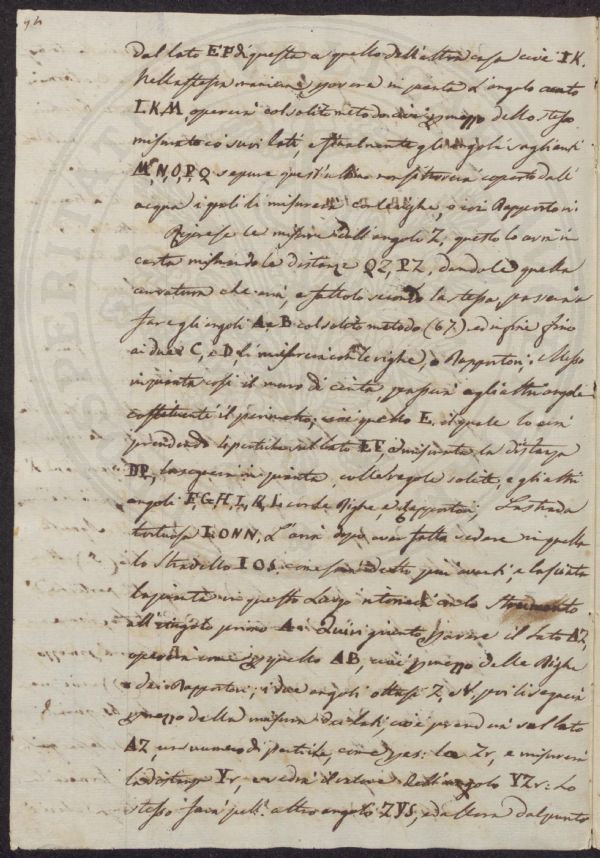 dal lato EP di questa a quello dell'altra casa cioè IK.
Nella stessa maniera per avere in pianta l'angolo acuto
LKM opererà col solito metodo cioè per mezzo dello stesso
misurato i suoi lati, e finalmente gli angoli saglienti
M, N, O, P, Q seppure quest'ultimo non si troverà coperto dall'
acqua i quali li misurerà con le righe, o coi Rapportori.
Riprese le misure dell'angolo Z, questo lo avrà in
carta misurando le distanze QZ, PZ, dandole quella
curvatura che avrà, e fattolo secondo la stessa, passerà a
fare gli angoli A e B col solito metodo (67) ed infine fino
ai due C, e D li misurerà con le righe, o Rapportori; Messo
in pianta così il muro di cinta, passerà agli altri angoli
costituente il perimetro, cioè quello E, il quale lo avrà
prendendo le pertiche sul lato EF e misurata la distanza
DP, la segnerà in pianta colle regole solite, e gli altri
angoli F, G, H, I, K, L con le Righe, e Rapportori; La strada
tortuosa LONN, l'avrà dopo aver fatta sedere in quella
lo Stradello IOS come sarà detto più avanti, e lasciata
la pianta in questo luogo ritornerà con lo Stromento
all'angolo primo A. Quivi giunto per avere il lato AZ,
opererà come per quello AB, cioè per mezzo delle Righe
e dei Rapportori; i due angoli ottusi Z, e Y, poi li segnerà
per mezzo della misura dei lati, cioè prenderà sul lato
AZ, un numero di pertiche, come per es: le Zr, e misurerà
la distanza Yr, e vedrà il valore dell'angolo YZr: Lo
stesso farà pell'altro angolo ZYS, ed allora dal punto